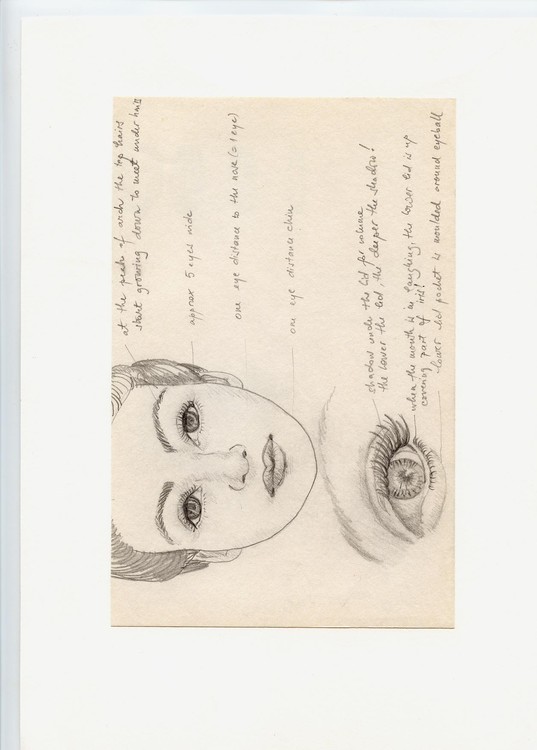 at the peak of arch the top hairs
start growing down to meet under hairs
approx 5 eyes wide
one eye distance to the nose (= 1 eye)
one eye distance chin
shadow under the lid for volume
the lower the lid, the deeper the shadow!
when the mouth is laughing, the lower lid is up
covering part of iris!
lower lid pocket is moulded around eyeball